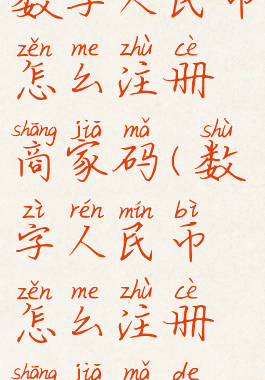 数字人民币
zěn me zhù cè
怎么注册
shāng jiā mǎ shù
商家码(数
zì rén mín bì
字人民币
zěn me zhù cè
怎么注册
shāng jiā mǎ de